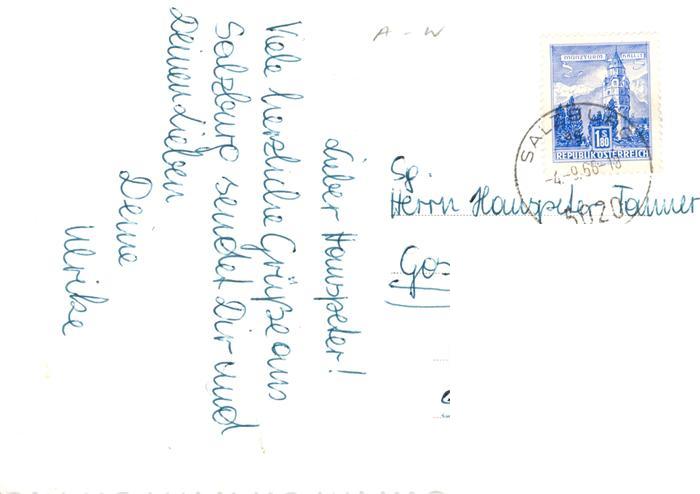 Lieber Hanspeter!
Viele herzliche Grüße aus
Salzburg sendet Dir und
Deinen Lieben
Deine
Ulrike
A - W
MÜNZTURM HALL i.T.
S 1.80
REPUBLIK ÖSTERREICH
SALZBURG
-4.-9.66-18
5020
Sg.
Herrn Hanspeter Tanner